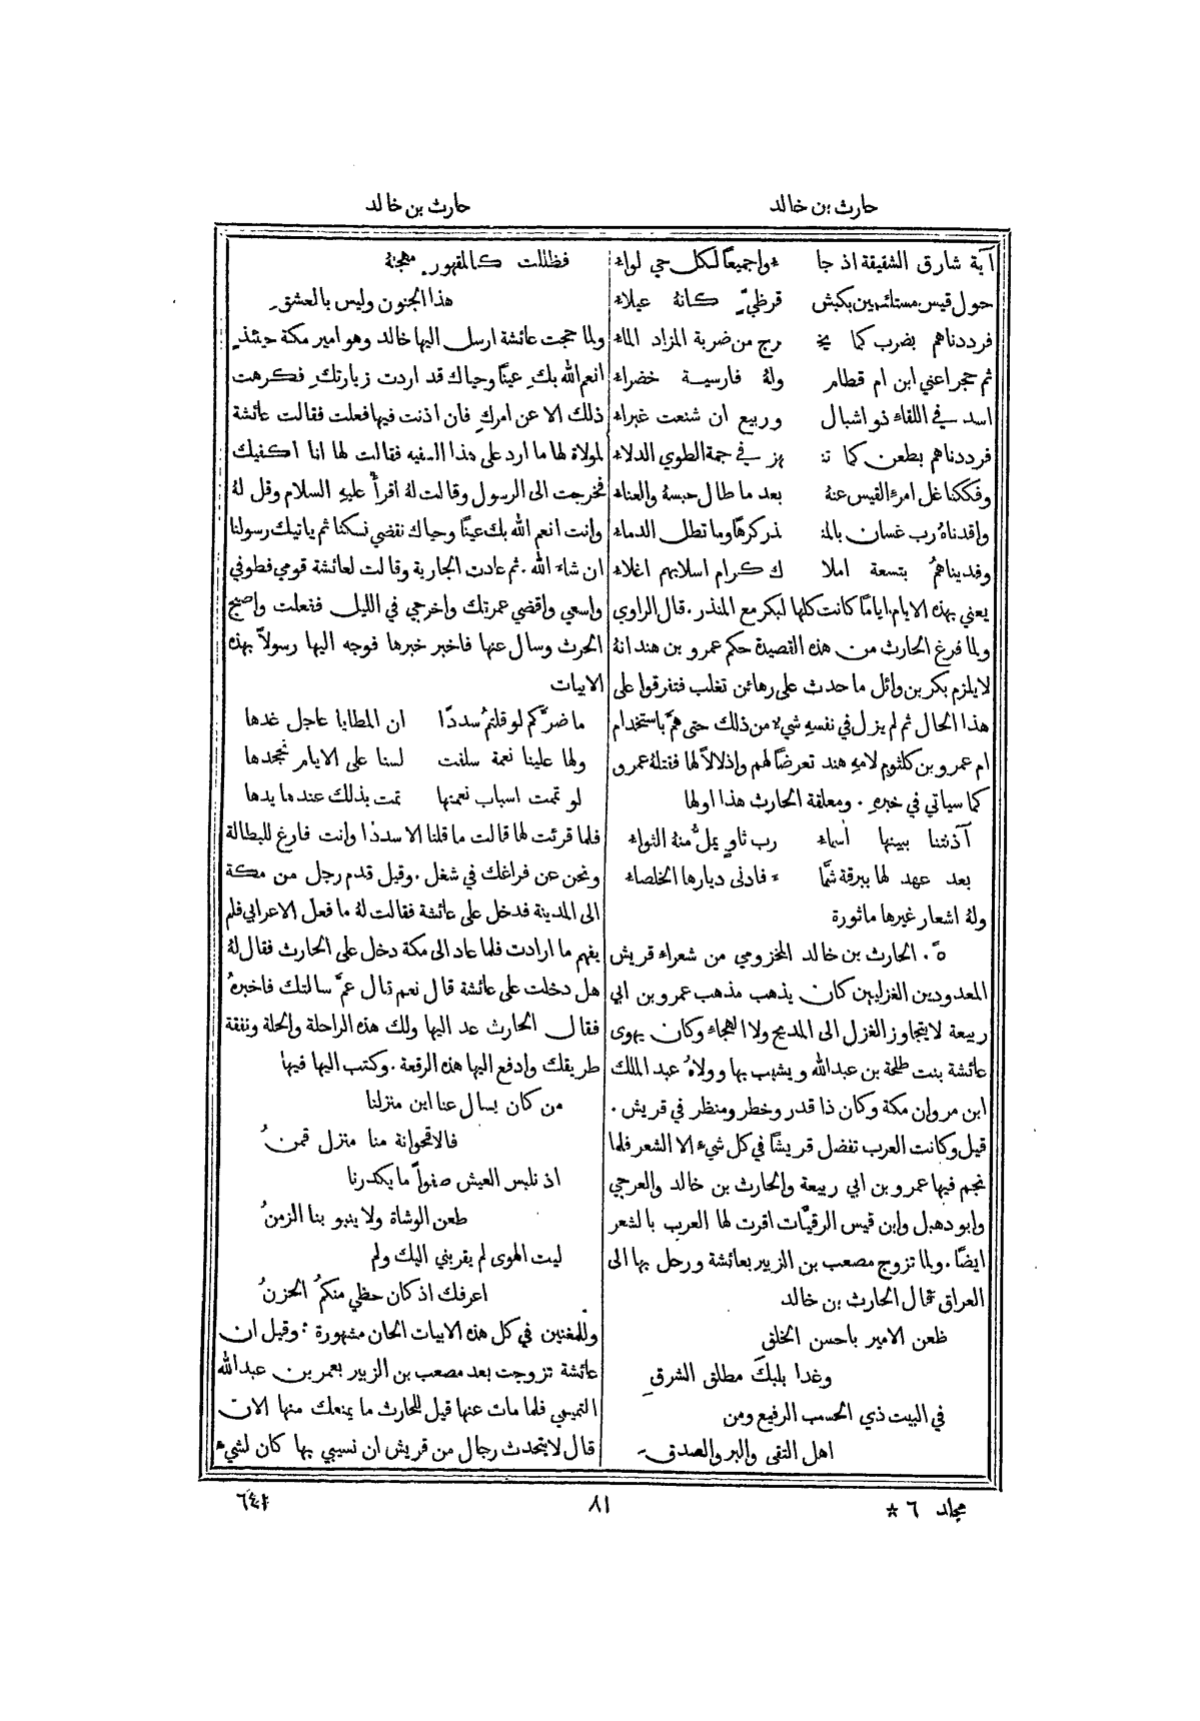 حارث بن خالد
حارث بن خالد
آية شارق الشقيقة اذ جا ءوا جميعًا لكل حي لواء
حول قيس مستلئمين بكبش قرظيٍّ كانهُ عبلاء
فرددناهم بضرب كما يخ رج من ضربة المزاد الماء
ثم حجرا عني ابن ام قطام ولهُ فارسية خضراء
اسد في اللقاء ذو اشبال وربيع ان شنعت غبراء
فرددناهم بطعن كما تن هز في جمة الطوي الدلاء
وفككنا غل امرء القيس عنهُ بعد ما طال حبسهُ والعناء
واقدناهُ رب غسان بالمنذ ذر كرهًا وما تطل الدماء
وفديناهمُ بتسعة املا ك كرام اسلابهم اغلاء
يعني بهذه الايام ايامًا كانت كلها لبكر مع المنذر. قال الراوي
ولما فرغ الحارث من هذه القصيدة حكم عمرو بن هند انهُ
لا يلزم بكر بن وائل ما حدث على رهائن تغلب فتفرقوا على
هذا الحال ثم لم يزل في نفسهِ شيء من ذلك حتى همَّ باستخدام
ام عمرو بن كلثوم لامهِ هند تعرضًا لهم واذلالاً لها فقتلهُ عمرو
كما سياتي في خبرهِ. ومعلقة الحارث هذا اولها
آذنتنا ببينها أسماء رب ثاوٍ يملُّ منهُ الثواء
بعد عهد لها ببرقة شمَّا ء فادنى ديارها الخلصاء
ولهُ اشعار غيرها ماثورة
٥ّ. الحارث بن خالد المخزومي من شعراء قريش
المعدودين الغزليين كان يذهب مذهب عمرو بن ابي
ربيعة لا يتجاوز الغزل الى المديح ولا الهجاء وكان يهوى
عائشة بنت طلحة بن عبدالله ويشبب بها وولاهُ عبد الملك
ابن مروان مكة وكان ذا قدر وخطر ومنظر في قريش.
قيل وكانت العرب تفضل قريشًا في كل شيء الا الشعر فلما
نجم فيها عمرو بن ابي ربيعة والحارث بن خالد والعرجي
وابو دهبل وابن قيس الرقيَّات اقرت لها العرب بالشعر
ايضًا. ولما تزوج مصعب بن الزبير بعائشة ورحل بها الى
العراق قال الحارث بن خالد
ظعن الامير باحسن الخلقِ
وغدا بلبكَ مطلق الشرقِ
في البيت ذي الحسب الرفيع ومن
اهل التقى والبر والصدقِ
فظللت كالمقهور مهجتهُ
هذا الجنون وليس بالعشقِ
ولما حجت عائشة ارسل اليها خالد وهو امير مكة حينئذٍ
انعم الله بكِ عينًا وحياك قد اردت زيارتكِ فكرهت
ذلك الا عن امركِ فان اذنت فيها فعلت فقالت عائشة
لمولاة لها ما ارد على هذا السفيه فقالت لها انا اكفيك
فخرجت الى الرسول وقالت لهُ اقرأ عليهِ السلام وقل لهُ
وانت انعم الله بك عينًا وحياك نقضي نسكنا ثم ياتيك رسولنا
ان شاء الله. ثم عادت الجارية وقالت لعائشة قومي فطوفي
واسعي واقضي عمرتك واخرجي في الليل ففعلت واصبح
الحرث وسال عنها فاخبر خبرها فوجه اليها رسولاً بهذه
الابيات
ما ضرَّكم لو قلتمُ سددًا ان المطايا عاجل غدها
ولها علينا نعمة سلفت لسنا على الايام نجحدها
لو تمت اسباب نعمتها تمت بذلك عندنا يدها
فلما قرئت لها قالت ما قلنا الا سددًا وانت فارغ للبطالة
ونحن عن فراغك في شغل. وقيل قدم رجل من مكة
الى المدينة فدخل على عائشة فقالت لهُ ما فعل الاعرابي فلم
يفهم ما ارادت فلما عاد الى مكة دخل على الحارث فقال لهُ
هل دخلت على عائشة قال نعم قال عمَّ سالتك فاخبرهُ
فقال الحارث عد اليها ولك هذه الراحلة والحلة ونفقة
طريقك وادفع اليها هذه الرقعة. وكتب اليها فيها
من كان يسال عنا اين منزلنا
فالاقحوانة منا منزل قمنُ
اذ نلبس العيش صفوًا ما يكدرنا
طعن الوشاة ولا ينبو بنا الزمنُ
ليت الهوى لم يقربني اليك ولم
اعرفك اذ كان حظي منكمُ الحزنُ
وللمغنين في كل هذه الابيات الحان مشهورة: وقيل ان
عائشة تزوجت بعد مصعب بن الزبير بعمر بن عبدالله
التميمي فلما مات عنها قيل للحارث ما يمنعك منها الان
قال لا يتحدث رجال من قريش ان نسيبي بها كان لشيء
مجلد ٦ *
٨١